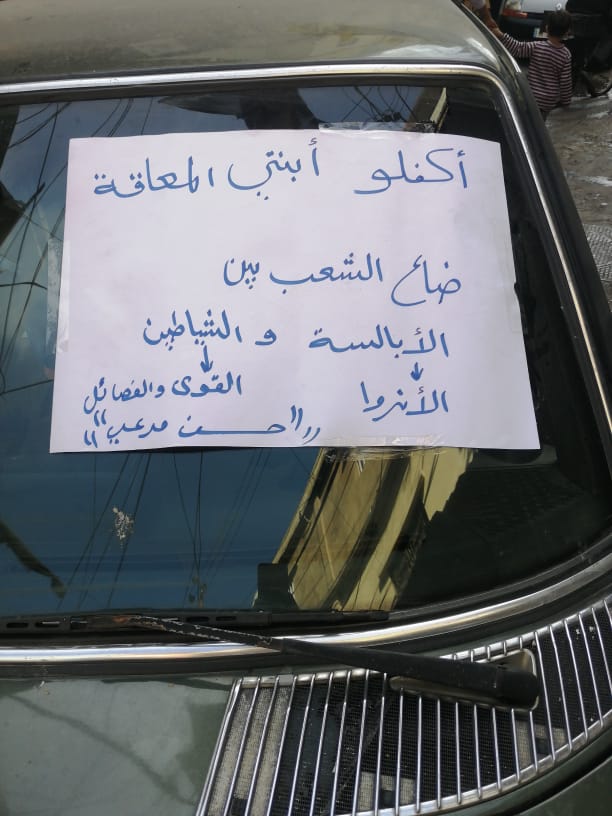 أكفلو أبنتي المعاقة
ضائع الشعب بين
الأبالسة و الشياطين
↓ ↓
الأنروا القوى والفصائل
""حسن مدعب""